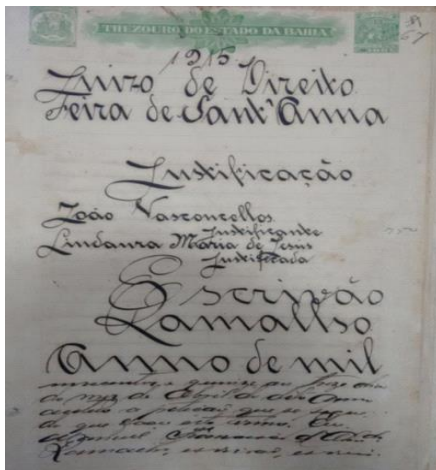 THEZOURO DO ESTADO DA BAHIA
1915
Juizo de Direito
Feira de Sant'Anna
Justificação
João Vasconcellos
Justificante
Lindaura Maria de Jesus
Justificada
Escrivão
Ramalho
Anno de mil
novecentos e quinze aos
do mez de Abril do dito anno
a petição que se segue
do que faço este termo. Eu